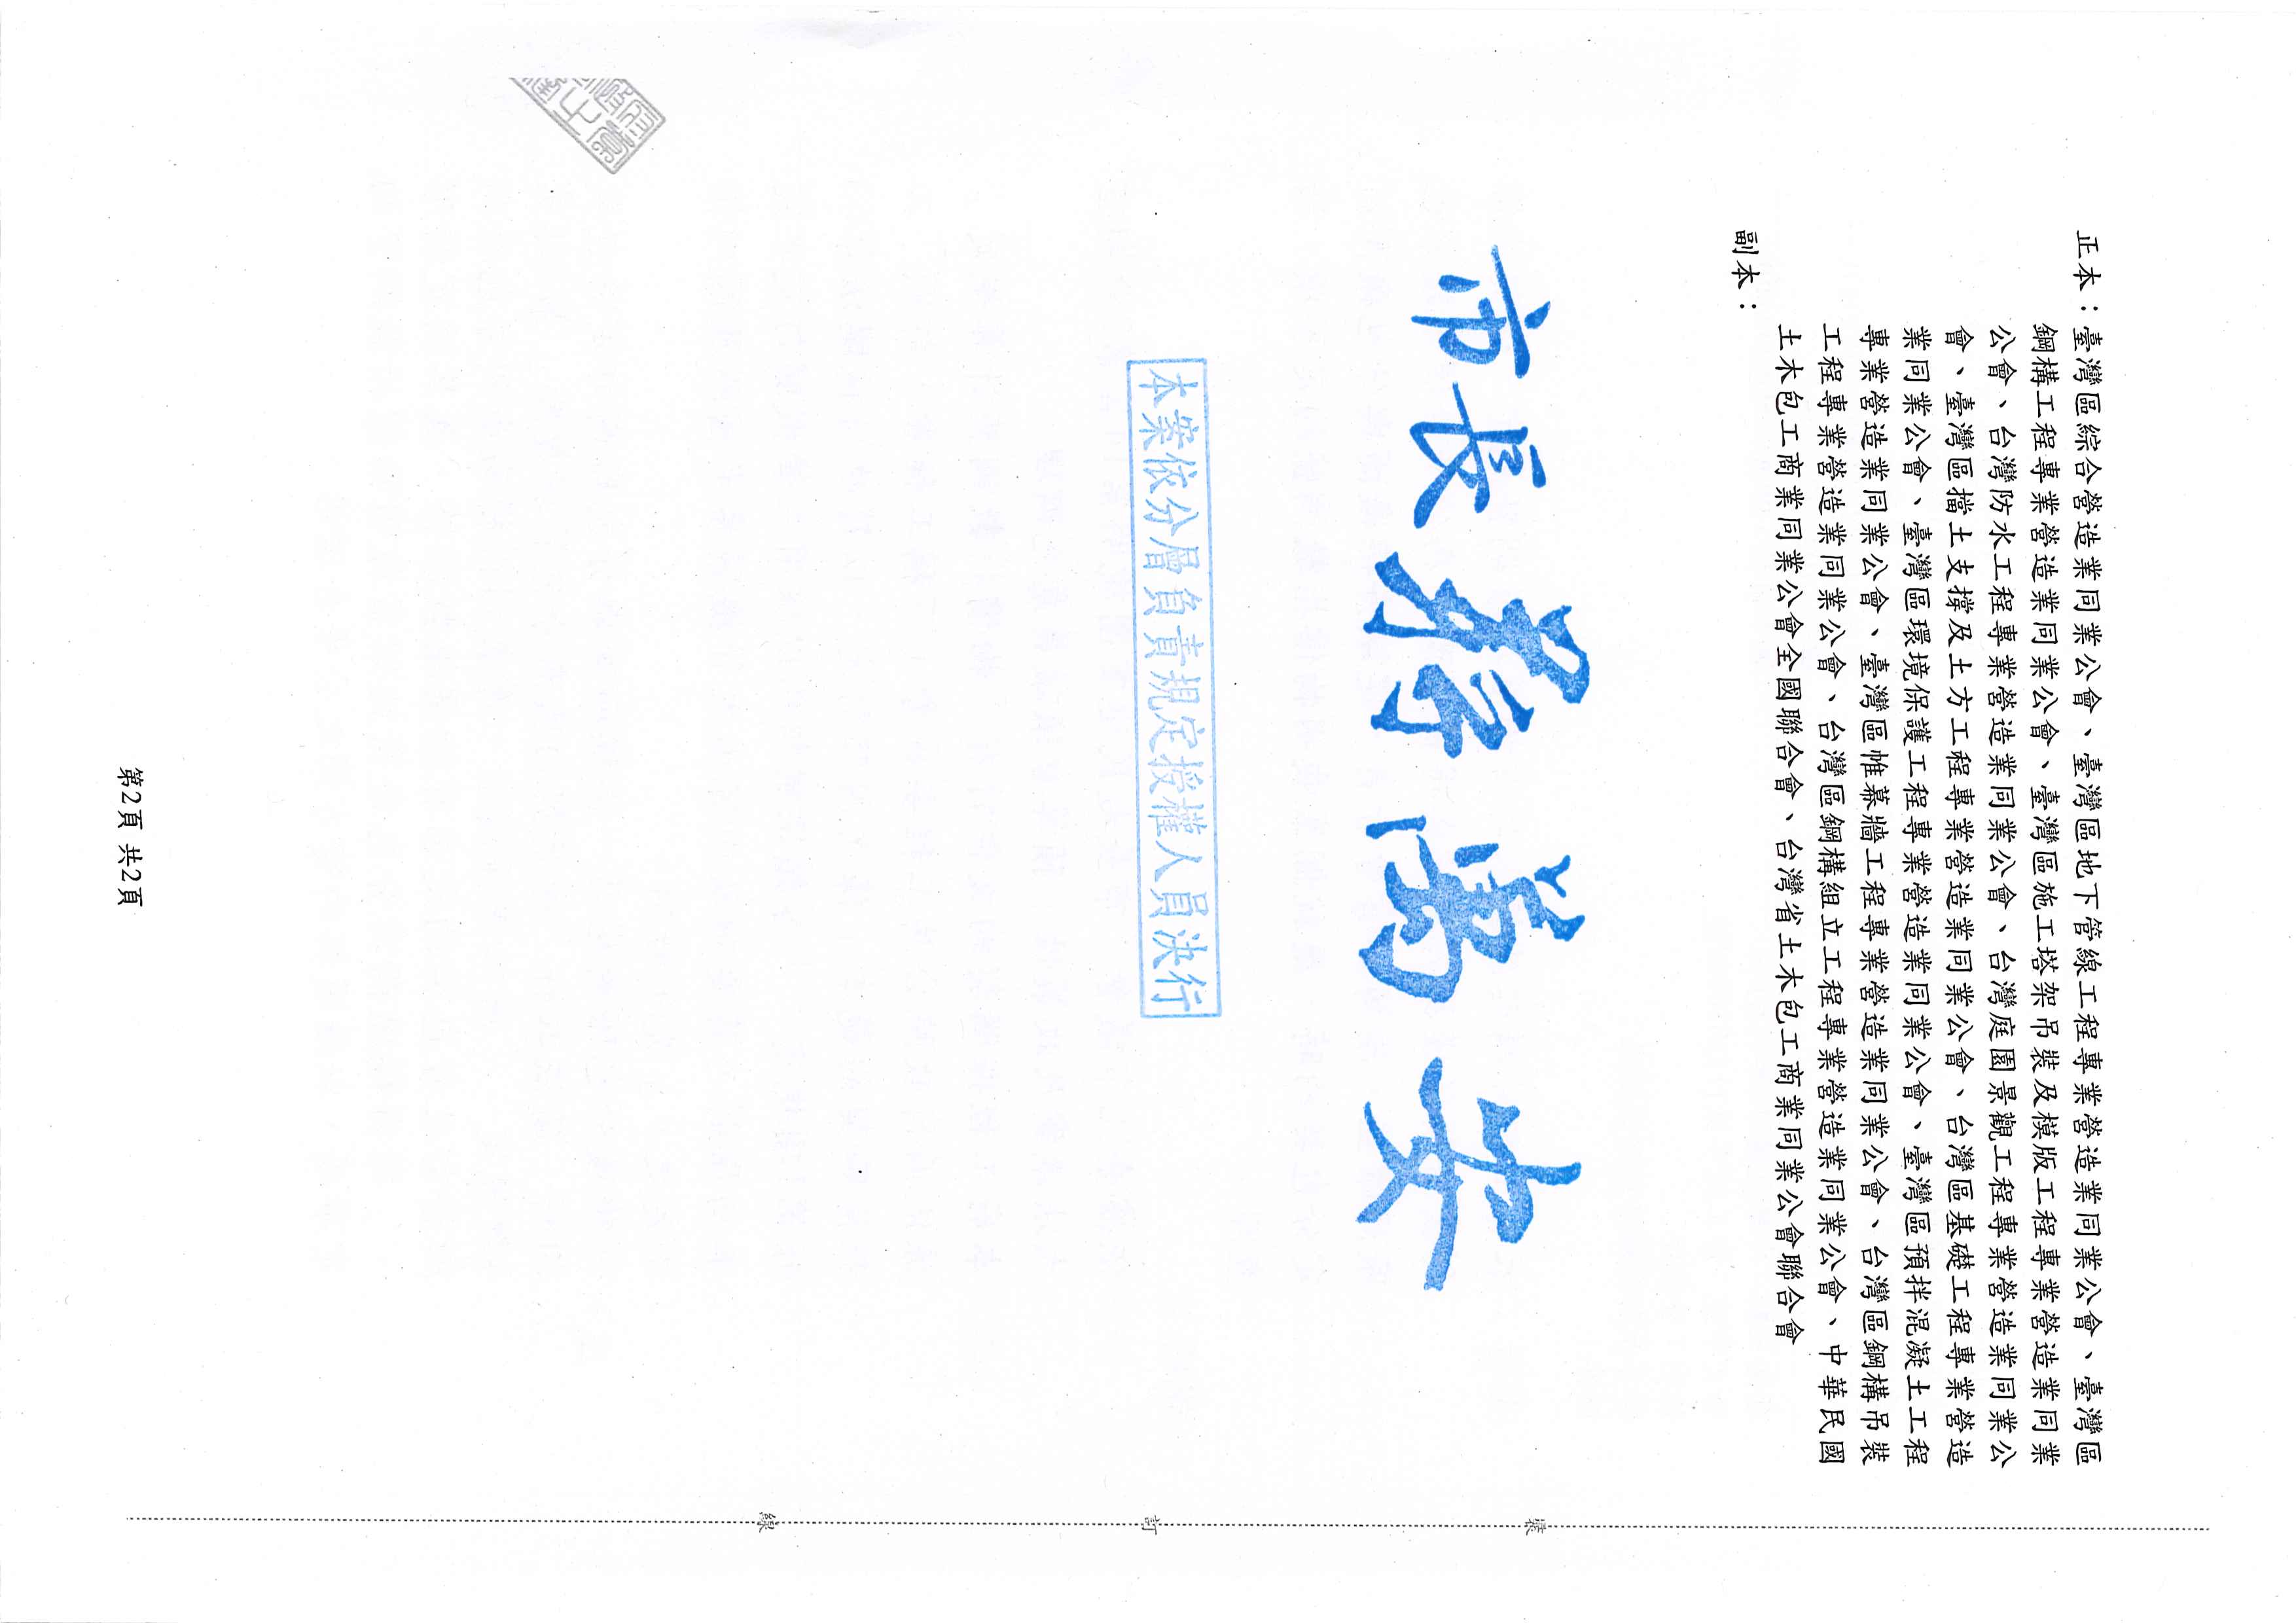 正本：臺灣區綜合營造業同業公會、臺灣區地下管線工程專業營造業同業公會、臺灣區
鋼構工程專業營造業同業公會、臺灣區施工塔架吊裝及模版工程專業營造業同業
公會、台灣防水工程專業營造業同業公會、台灣庭園景觀工程專業營造業同業公
會、臺灣區擋土支撐及土方工程專業營造業同業公會、台灣區基礎工程專業營造
業同業公會、臺灣區環境保護工程專業營造業同業公會、臺灣區預拌混凝土工程
專業營造業同業公會、臺灣區帷幕牆工程專業營造業同業公會、台灣區鋼構吊裝
工程專業營造業同業公會、台灣區鋼構組立工程專業營造業同業公會、中華民國
土木包工商業同業公會全國聯合會、台灣省土木包工商業同業公會聯合會
副本：
市長蔣萬安
本案依分層負責規定授權人員決行
第2頁 共2頁
裝
訂
線